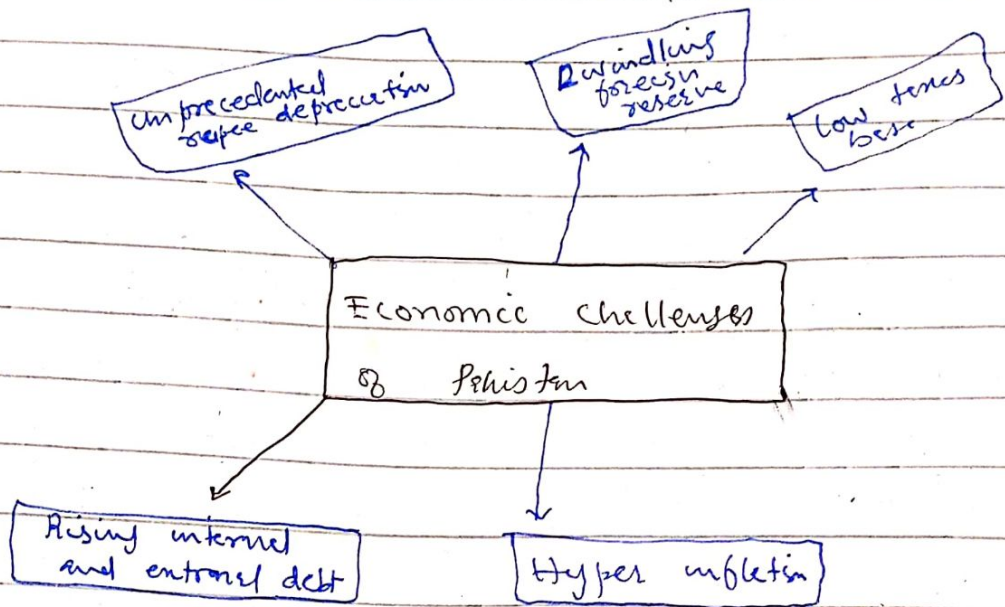 Unprecedented
rupee depreciation
Dwindling
foreign
reserve
Low taxes
base
Economic Challenges
of Pakistan
Rising internal
and external debt
Hyper inflation